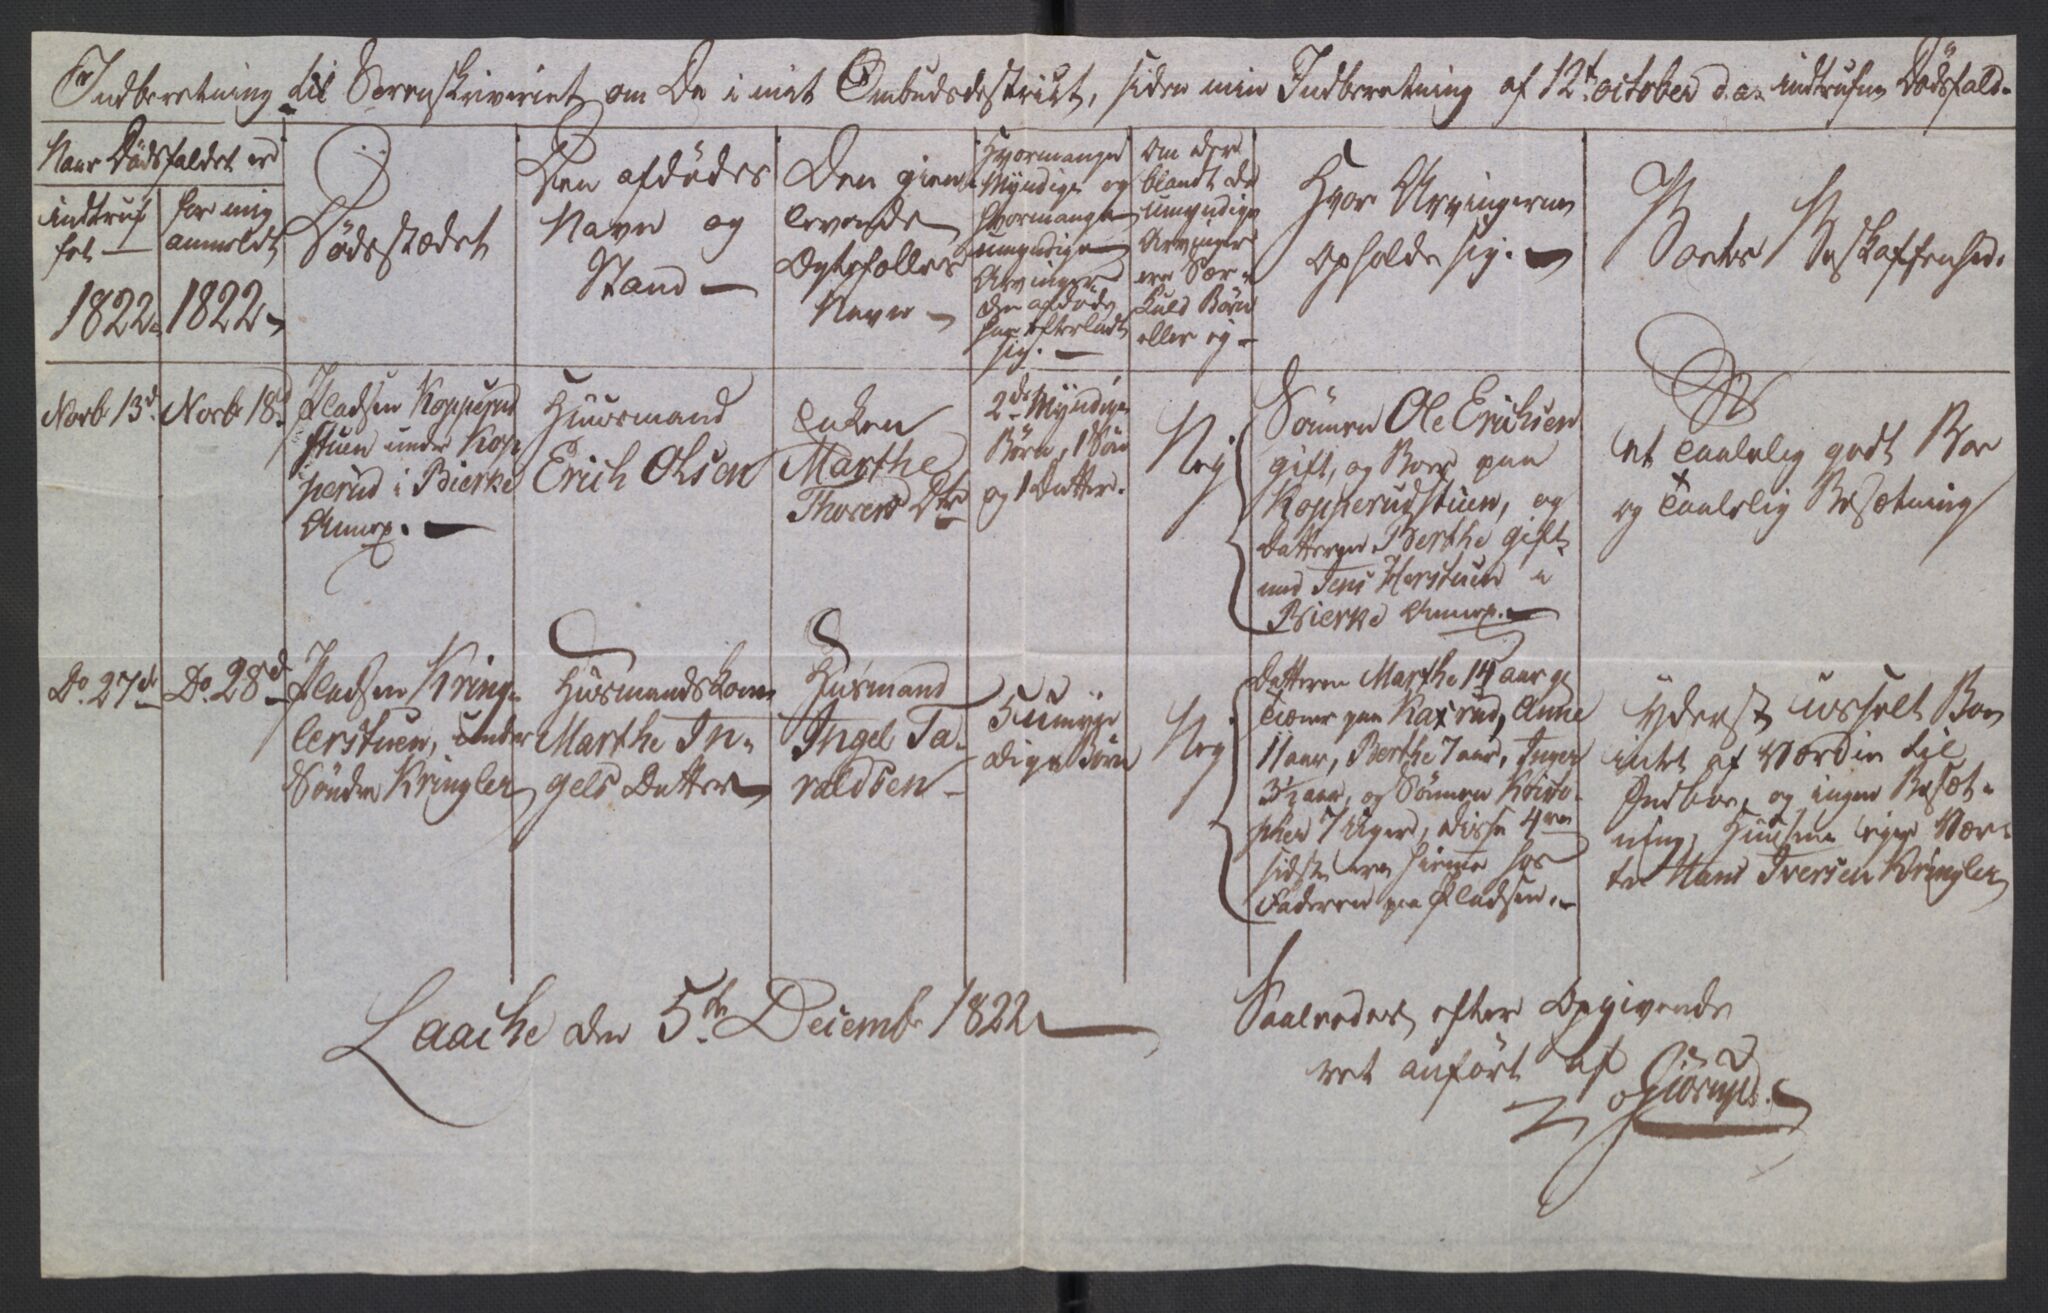 Indberetning til Sorenskriveriet om De i mit Ombudsdestrict, siden min Indberetning af 12te october d.a. indtrufne Dødsfald.
Naar Dødsfaldet er
indtruf
fet
1822
for mig
anmeldt
1822
Dødsstædet
Den afdødes
Navn og
Stand
Den gien
levende
Ægtefælles
Navn
Hvormange
Myndige og
hvormange
umyndige
Arvinger
den afdøde
har efterladt
sig.
Om der
blandt de
umyndige
Arvinger
ere Sær-
kuld Børn
eller ey
Hvor Arvingerne
opholde sig.
Boets Beskaffenhed.
Novbr 13d
Novbr 18d
Pladsen Kopperud
stuen under Kop
perud i Bierke
Annex.
Huusmand
Erich Olsen
Enken
Marthe
Thorens Dtr
2de Myndige
Børn, 1 Søn
og 1 Datter.
Ney
Sønnen Ole Erichsen
gift, og Boer paa
Kopperudstuen, og
Datteren Berthe gift
med Jens Herstuen i
Bierke Annex.
Et taalelig godt Boe
og taalelig Besætning
Do 27de
Do 28d
Pladsen Kring-
lerstuen, under
Søndre Kringler
Huusmandskone
Marthe In-
gels Datter
Huusmand
Ingel Ta-
raldsen
5 Umyn
dige Børn
Ney
Datteren Marthe 14 aar
tiener paa Kaxrud, Anne
11 aar, Berthe 7 aar, Inger
3½ aar, og Sønnen Kristo-
pher 7 Uger, disse 4re
sidste ere hiemme hos
Faderen paa Pladsen.
Yderst usselt Boe
intet af Værdie til
Indboe, og ingen Besæt-
ning, Huusene eyer Vær-
ten Hans Iversen Kringler
Laache den 5te Decembr 1822
Saaledes efter Opgivende
ret anført af